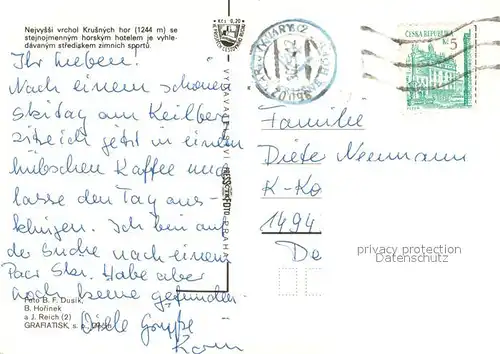 Nejvyšší vrchol Krušných hor (1244 m) se
stejnojmenným horským hotelem je vyhle-
dávaným střediskem zimních sportů.
Ihr Lieben!
Nach einem schönen
Skitag am Keilberg
sitze ich jetzt in einem
hübschen Kaffee und
lasse den Tag aus-
klingen. Ich bin auf
der Suche nach einem
Paar Skier. Habe aber
noch keine gefunden
Viele Grüße
Foto B. F. Dusík,
B. Hořínek
a J. Reich (2)
GRAFIATISK, s. p.,
Kčs 0,20
PRAHA
PRESSFOTO
ČESKÁ REPUBLIKA
Kč 5
Familie
Dieter Neumann
K-Ko
1494
De
privacy protection
Datenschutz